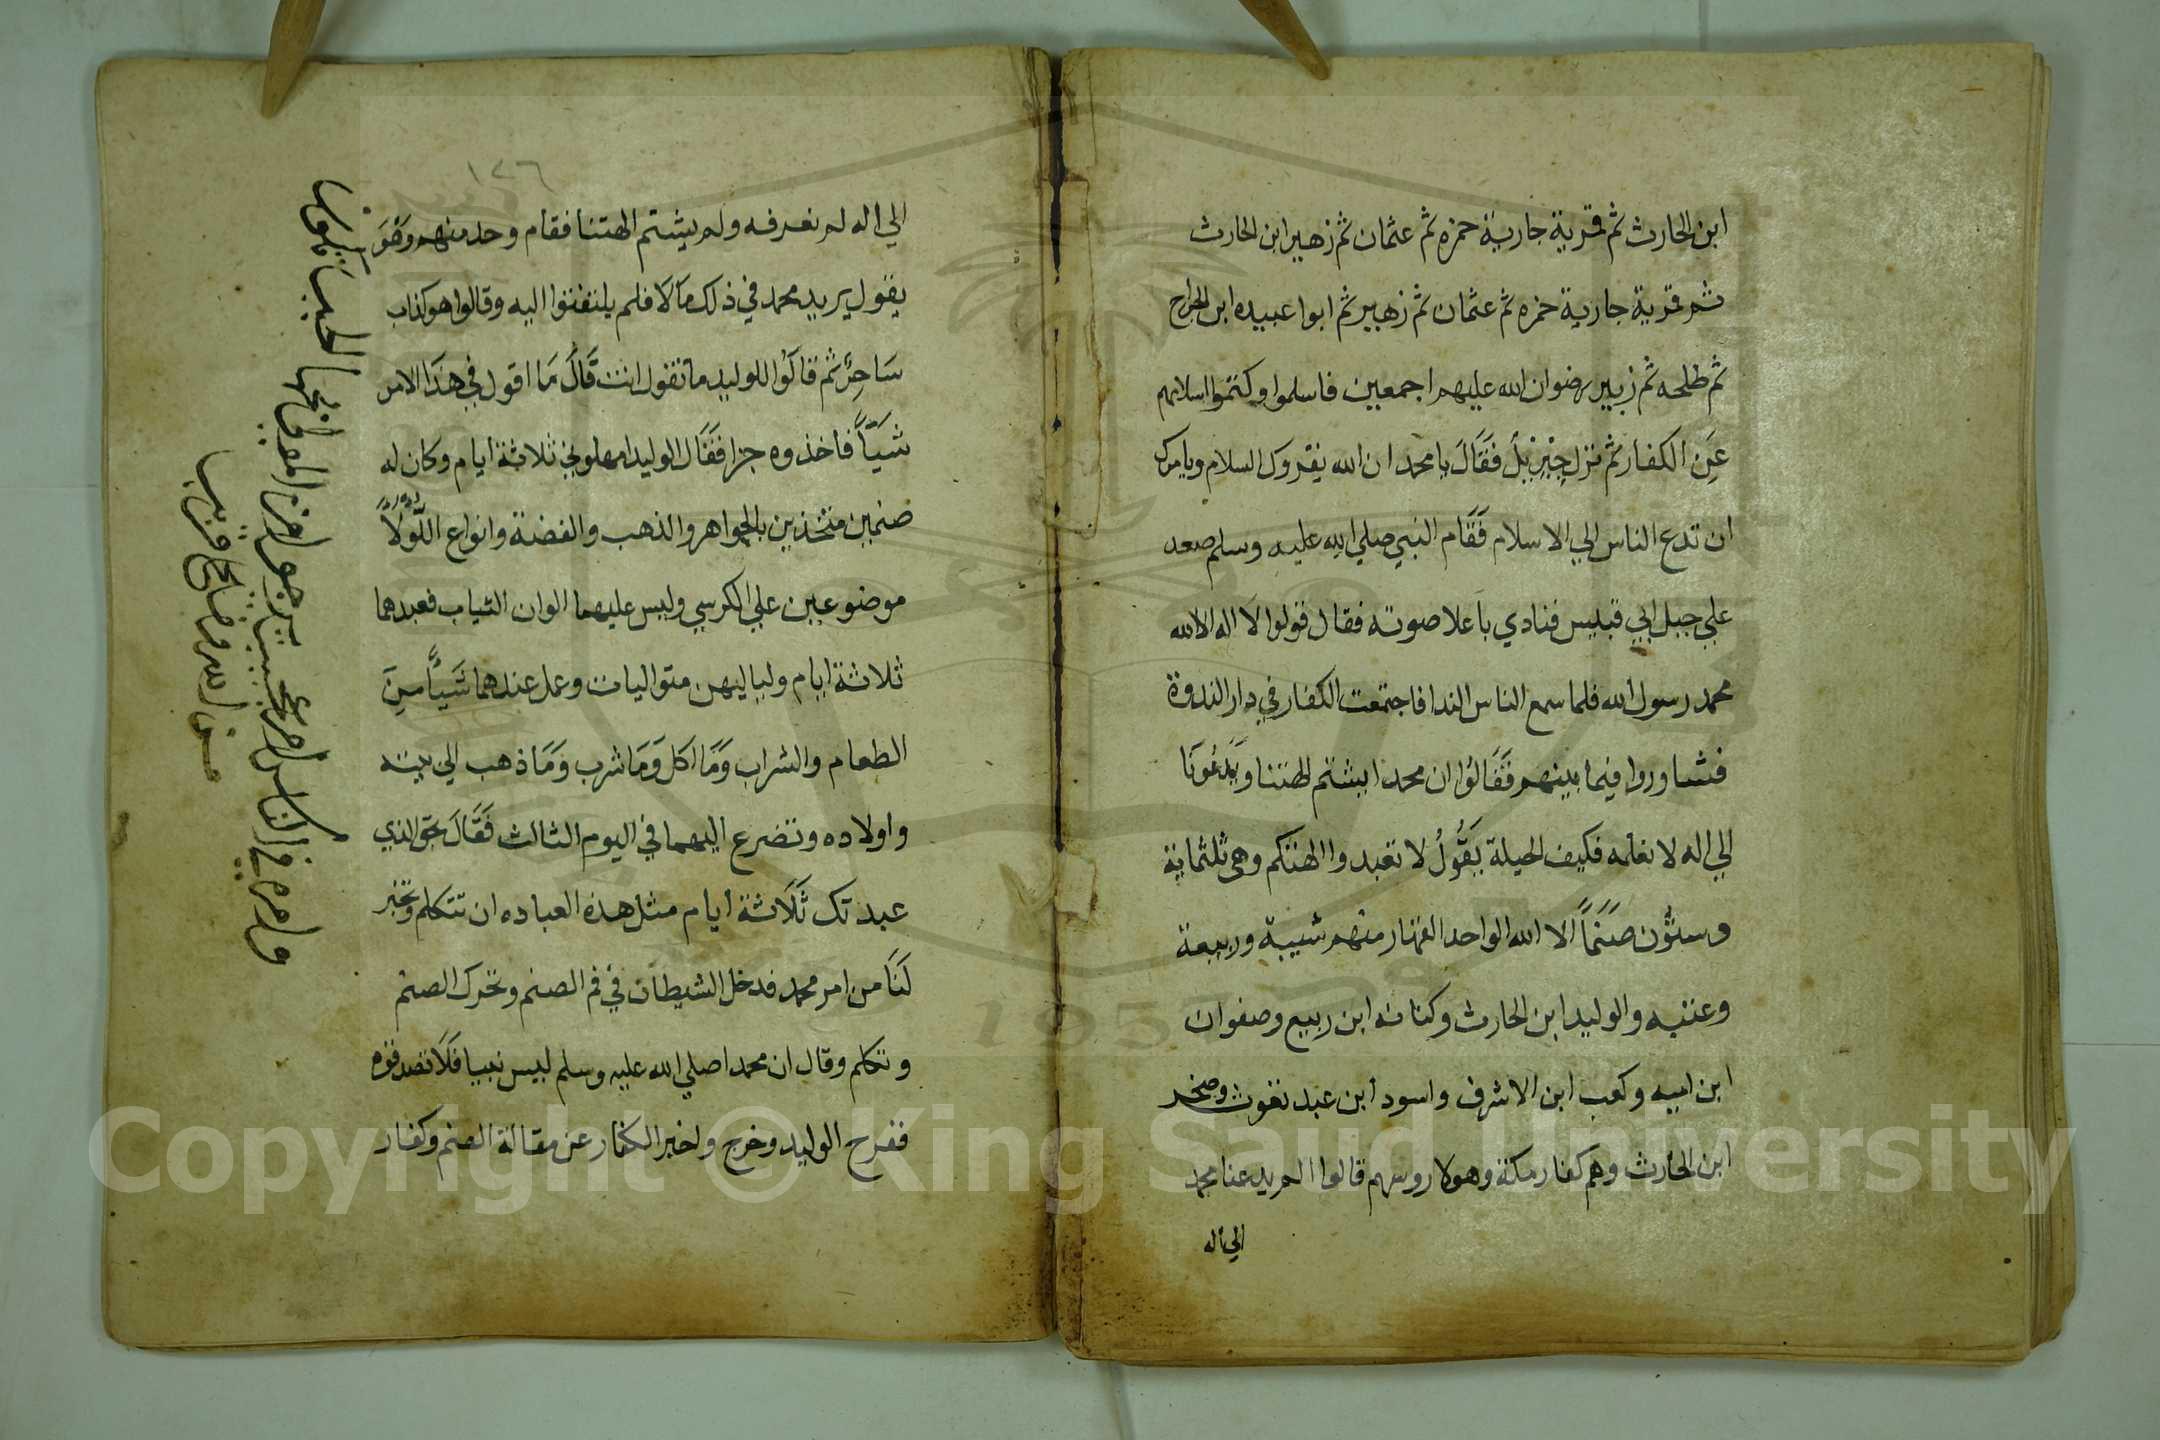 ابن الحارث ثم قمرية جارية حمزه ثم عثمان ثم زهير ابن الحارث
ثم قرية جارية حمزه ثم عثمان ثم زهير ثم ابوا عبيده ابن الجراح
ثم طلحه ثم زبير رضوان الله عليهم اجمعين فاسلموا وكتموا اسلامهم
عَن الكفار ثم نزل جِبْرِيْل فَقَالَ يا محمد ان الله يقروك السلام ويامرك
ان تدع الناس الي الاسلام فَقَام النبي صلي الله عليه وسلم صعد
علي جبل ابي قبيس فنادي باَعلا صوته فقال قولوا لَا اله الا الله
محمد رسول الله فلما سمع الناس الندا فاجتمعت الكفار في دار الندوة
فشاوروا فيما بينهم فَقَالُوا ان محمدا يشتم الهتنا ويَدعُونَا
الي اله لا نعلمه فكيف الحيلة يَقُولُ لا تعبدوا الهتكم وهي ثلثماية
وستُّون صَنَماً الا الله الواحد القهار منهم شيبة وربيعة
وعتبه والوليد ابن الحارث وكنانه ابن ربيع وصفوان
ابن اميه وكعب ابن الاشرف واسود أبن عبد يغوث وصخر
ابن الحارث وهم كفار مكة وهولا روسهم قالوا المريد عنا محمد
الي اله
١٢٦
الي اله لم نعرفه ولم يشتم الهتنا فقام وحد منهم وَهُوَ
يقول يريد محمد في ذلك مالا فلم يلتفتوا اليه وقالوا هو كذاب
سَاحِرٌ ثم قالَوُا للوليد ما تقول انت قَالَ مَا اقول في هذَا الامر
شَيَّاً فاخذوه جزا فَقَال الوليد امهلوني ثلاثة ايام وكان له
صنمين متخذين بالجواهر والذهب والفضة وانواع اللُّولُاً
موضوعين علي الكرسي ولبس عليهما الوان الثياب فعبدهما
ثلاثة ايام ولياليهن متواليات وعمل عندهما شَيَّاً مِنَ
الطعام والشراب وَمَا اكل وَمَا شرب وَمَا ذهب الي بيته
واولاده وتضرع اليهما في اليوم الثالث فَقَالَ بحق الذي
عبدتك ثَلَاثة أيام مثل هذه العباده ان تتكلم وتخبر
لَنَا من امر محمد فدخل الشيطان في فم الصنم وتحرك الصنم
وتكلم وقال ان محمدا صلي الله عليه وسلم ليس نبيا فَلَا تصدقوه
ففرح الوليد وخرج واخبر الكفار عن مقالة الصنم وكفار
نصر من الله وفتح قريب
Copyright © King Saud University
1957